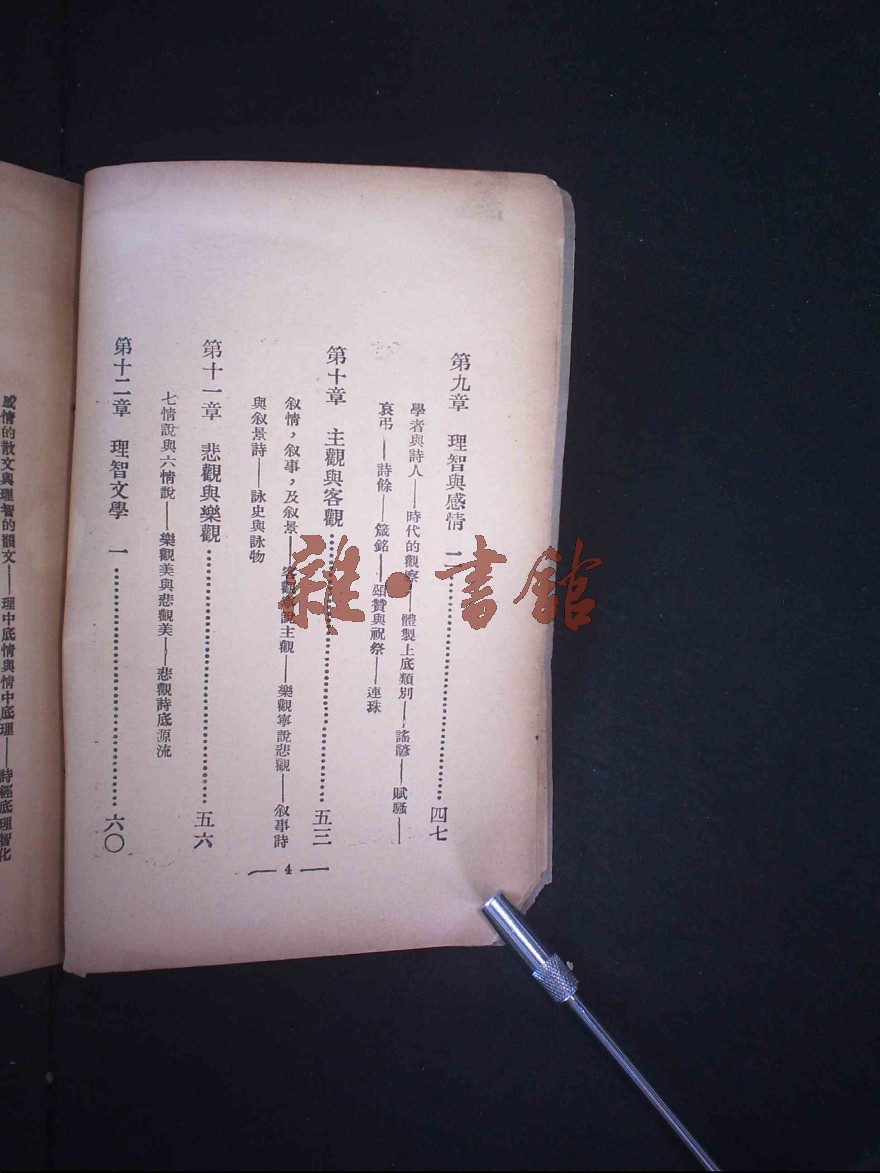 第九章　理智與感情　二……………………四七
學者與詩人——時代的觀察——體製上底類別——謠諺——賦騷——
哀弔——詩餘——箴銘——頌贊與祝祭——連珠
第十章　主觀與客觀……………………五三
敘情，敘事，及敘景——客觀寧說主觀——樂觀寧說悲觀——敘事詩
與敘景詩——詠史與詠物
第十一章　悲觀與樂觀……………………五六
七情說與六情說——樂觀美與悲觀美——悲觀詩底源流
第十二章　理智文學　一……………………六〇
— 4 —
感情的散文與理智的韻文——理中底情與情中底理——詩經底理智化
雜·書館